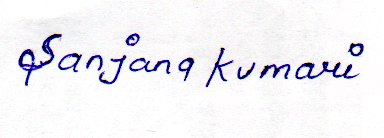 Sanjana kumari